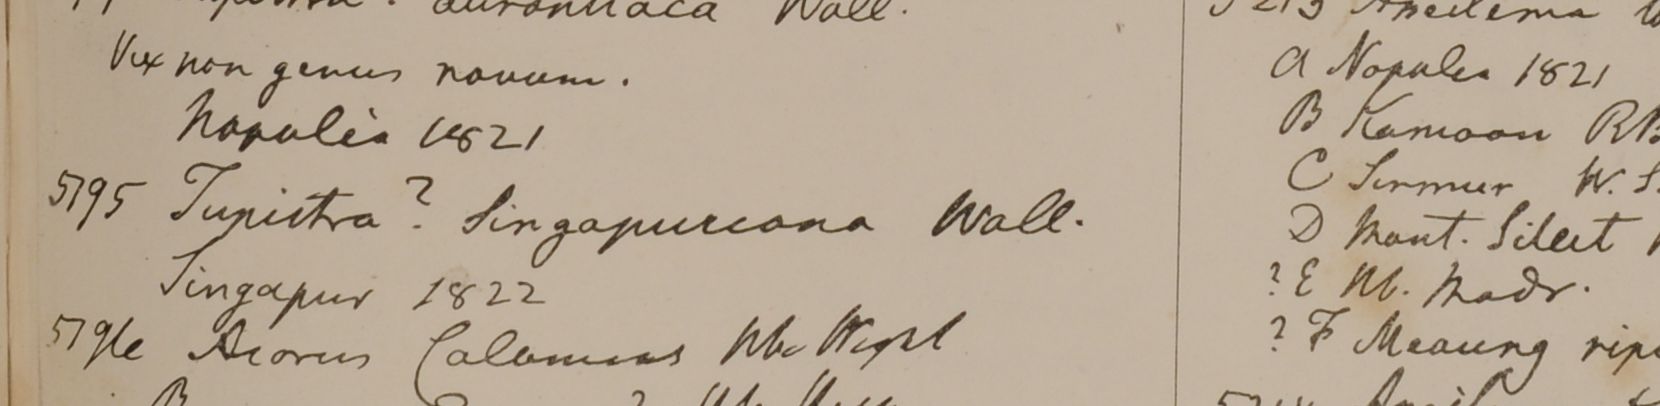 aurantiaca Wall.
Vix non genus novum.
Napalia 1821
5195 Tupistra? Singapureana Wall.
Singapur 1822
Acorus Calamus Hb. Wight
5213 Aneilema
A Napalia 1821
B Kamoon RB
C Sirmur W. S.
D Mont. Silect
? E Hb. Madr.
? F